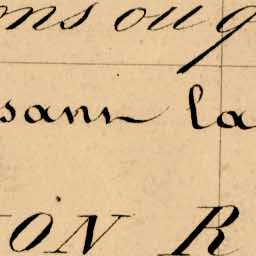 ons ou q
sann la
ION R